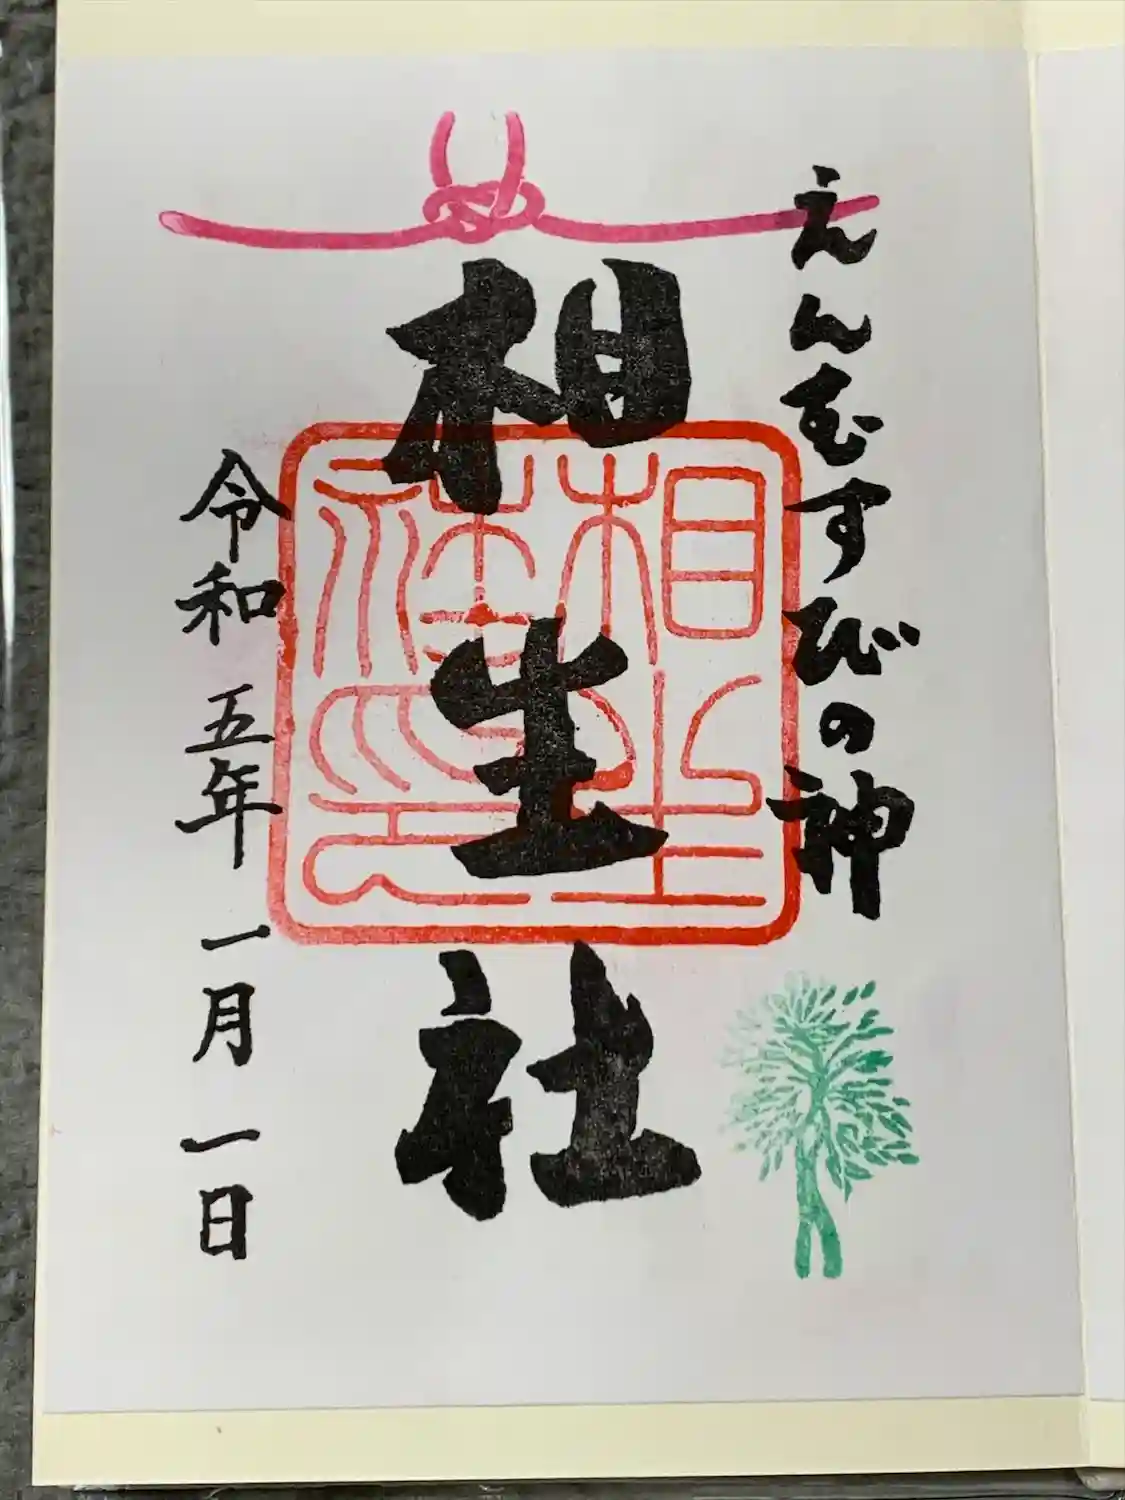 えんむすびの神
相生社
令和五年一月一日